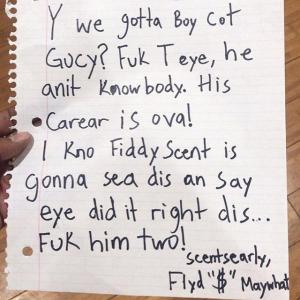 Y we gotta Boy Cot
Gucy? Fuk T eye, he
anit Knowbody. His
Carear is ova!
I Kno Fiddy Scent is
gonna sea dis an say
eye did it right dis...
Fuk him two!
scentsearly,
Flyd "$" Maywhat